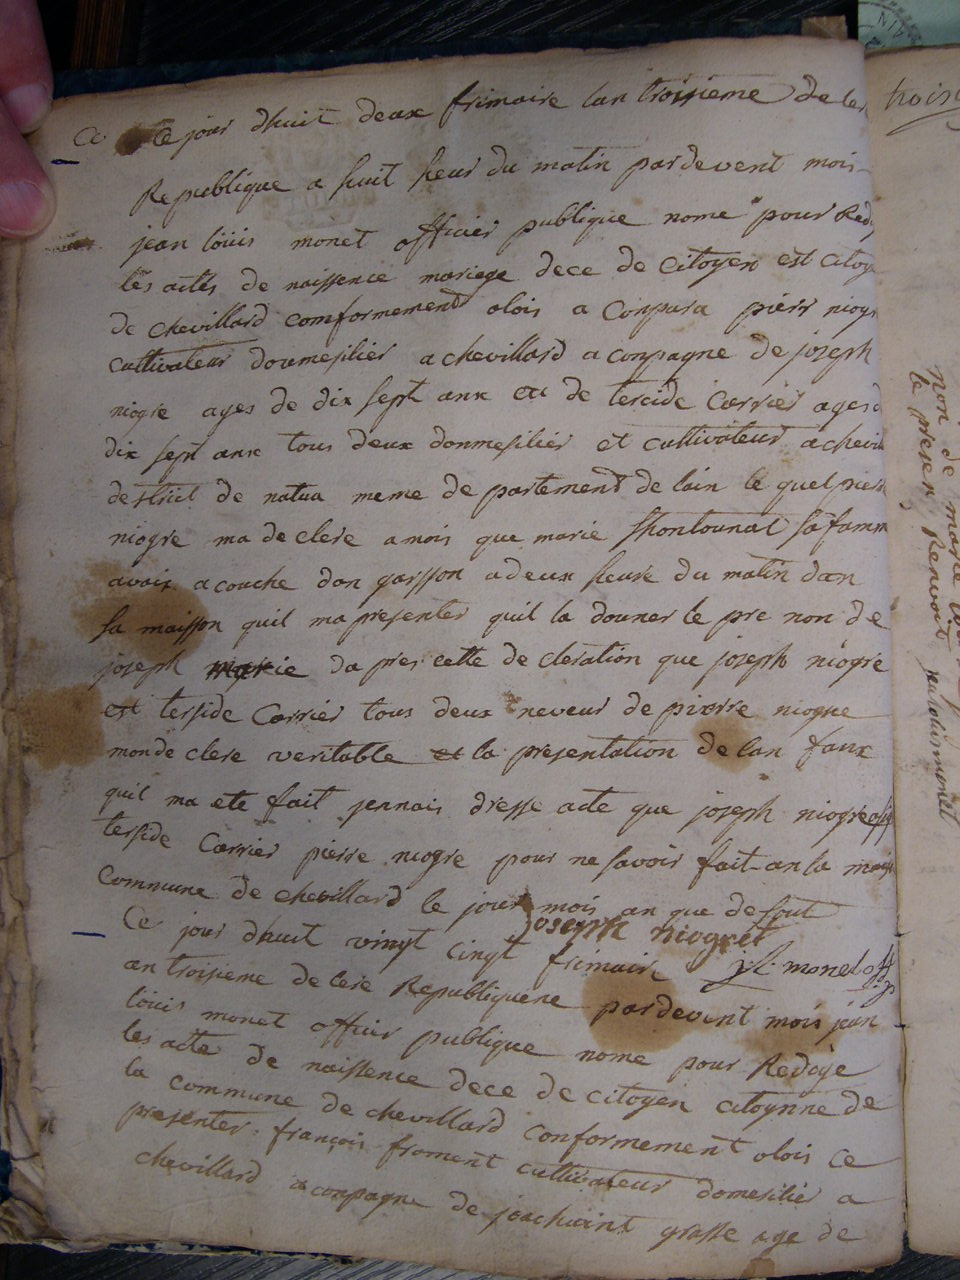 Ce Ce jour dhuit deux frimaire lan troisieme de ler
Republique a huit heur du matin pardevent mois
jean loüis monet officier publique nome pour Redg
les actes de naissence mariege dece de citoyen est citoy
de chevillard comformement olois a Conpara pierr niogr
cultivateur doumesilier a chevillard a conpagne de joseph
niogre ages de dix sept anx et de terside Carrier ages d
dix sept anx tous deux donmesilier et cultivateur a chevill
destrict de natua meme de partement de lain le quel pierr
niogre ma de clere a mois que marie sa famm
avoix a couche dan garsson a deux heure du matin dan
sa maisson quil ma presenter quil la douner le pre non de
joseph marie da pres cette de cleration que joseph niogre
est terside Carrier tous deux neveur de pierre niogre
monde clere veritable et la presentation de lan fanx
quil ma ete fait jennais dresse acte que joseph niogre
terside Carrier pierre niogre pour ne savoir fait an la
Commune de chevillard le jour mois an que de sout
joseph niogret
j.l. monet off
Ce jour dhuit vingt cinqt frimair
an troisieme de lere Republiquene pardevent mois jean
loüis monet officir publique nome pour Redoje
les acte de naissence dece de citoyen citoynne de
la commune de chevillard conformement olois ce
presenter françois froment cultivateur domesilie a
chevillard a conpagne de joachaint grosse age de
trois
non de marie
le preser Renvoit jean loüis monet